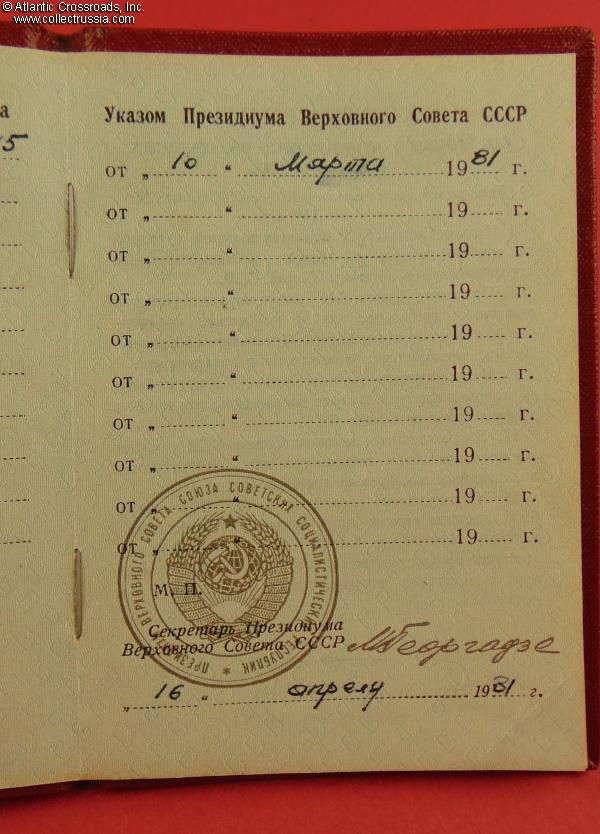 © Atlantic Crossroads, Inc.
www.collectrussia.com
а
5
Указом Президиума Верховного Совета СССР
от „ 10 “ Марта 1981 г.
от „ “ 19 г.
от „ “ 19 г.
от „ “ 19 г.
от „ “ 19 г.
от „ “ 19 г.
от „ “ 19 г.
от „ “ 19 г.
от „ “ 19 г.
от „ “ 19 г.
ПРЕЗИДИУМ ВЕРХОВНОГО СОВЕТА СОЮЗА СОВЕТСКИХ СОЦИАЛИСТИЧЕСКИХ РЕСПУБЛИК
М. П.
Секретарь Президиума
Верховного Совета СССР МГеоргадзе
„ 16 “ апрелу 1981 г.